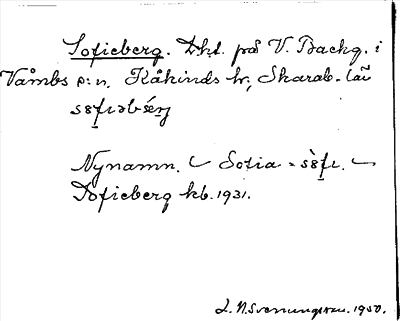 Sofieberg. Lht. på V. Backg. i
Våmbs s:n. Kåkinds hr, Skarab. län
Nynamn. < Sofia = sòfı. <
Sofieberg kb. 1931.
S. N. Svenungsson. 1950.